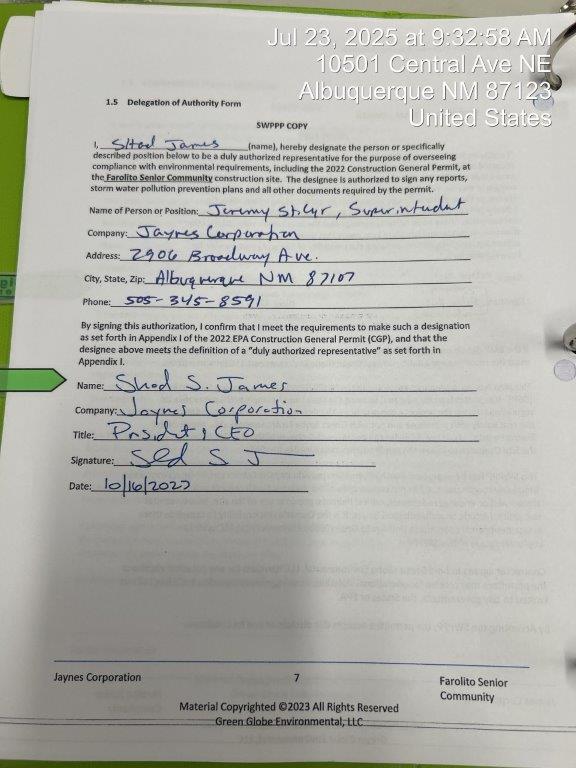 Jul 23, 2025 at 9:32:58 AM
10501 Central Ave NE
Albuquerque NM 87123
United States
1.5 Delegation of Authority Form
SWPPP COPY
I, Shad James (name), hereby designate the person or specifically
described position below to be a duly authorized representative for the purpose of overseeing
compliance with environmental requirements, including the 2022 Construction General Permit, at
the Farolito Senior Community construction site. The designee is authorized to sign any reports,
storm water pollution prevention plans and all other documents required by the permit.
Name of Person or Position: Jeremy St.Cyr, Superintendent
Company: Jaynes Corporation
Address: 2906 Broadway Ave.
City, State, Zip: Albuquerque NM 87107
Phone: 505-345-8591
By signing this authorization, I confirm that I meet the requirements to make such a designation
as set forth in Appendix I of the 2022 EPA Construction General Permit (CGP), and that the
designee above meets the definition of a "duly authorized representative" as set forth in
Appendix I.
Name: Shad S. James
Company: Jaynes Corporation
Title: President & CEO
Signature:
Date: 10/16/2023
Jaynes Corporation
7
Farolito Senior
Community
Material Copyrighted ©2023 All Rights Reserved
Green Globe Environmental, LLC